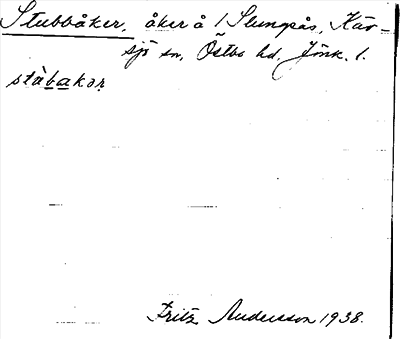 Stubbåker, åker å 1 Slungsås, Kär-
sjö sn, Östbo hd, Jönk. l.
stàbakər
Fritz Andersson 1938.